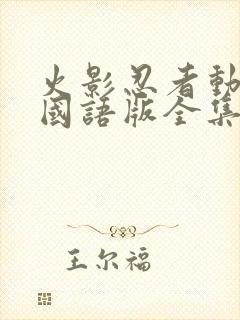 火影忍者動
國語版全集
王尔福